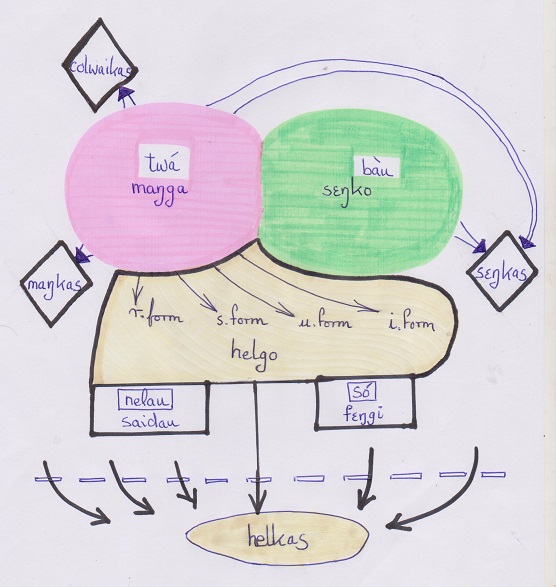 colwaikas
twá
maŋga
bàu
sɛŋko
maŋkas
sɛŋkas
r.form
s.form
u.form
i.form
helgo
nelau
saidau
só
fɛŋgi
helkas